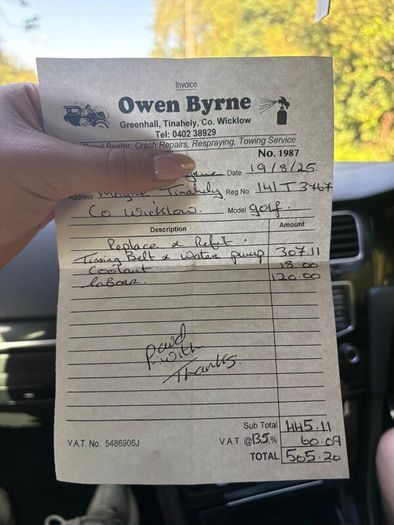 Invoice
Owen Byrne
Greenhall, Tinahely, Co. Wicklow
Tel: 0402 38929
Beater, Crash Repairs, Respraying, Towing Service
No. 1987
Date 19/8/25.
Address Tinahely Reg No. 141 T 3767
Co Wicklow. Model golf.
Description Amount
Replace & Refit.
Timing Belt & Water pump 307.11
Coolant 18.00
labour. 120.00
paid
with
Thanks.
Sub Total 445.11
V.A.T. No. 5486906J V.A.T. @13.5% 60.09
TOTAL 505.20